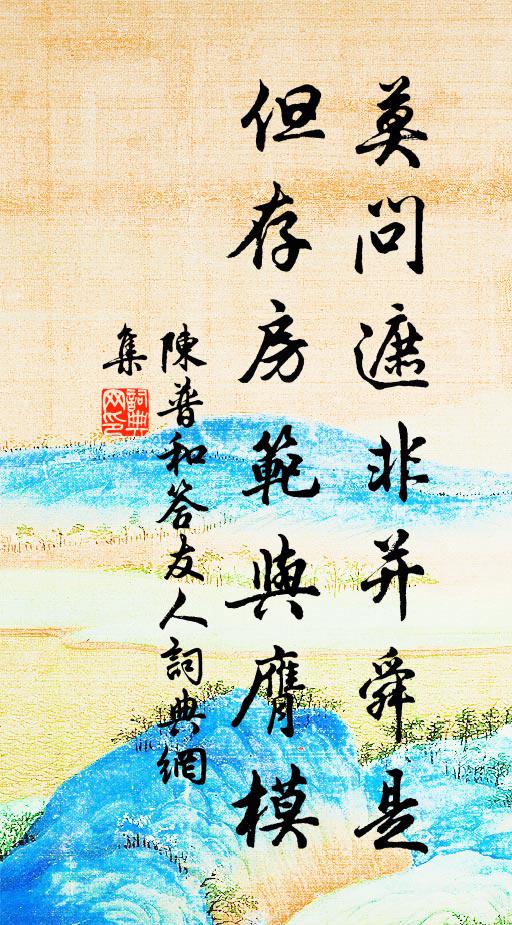 莫問遮非并舜是
但存房範與膺模
陳普和答友人詞典網
集
詞典網印